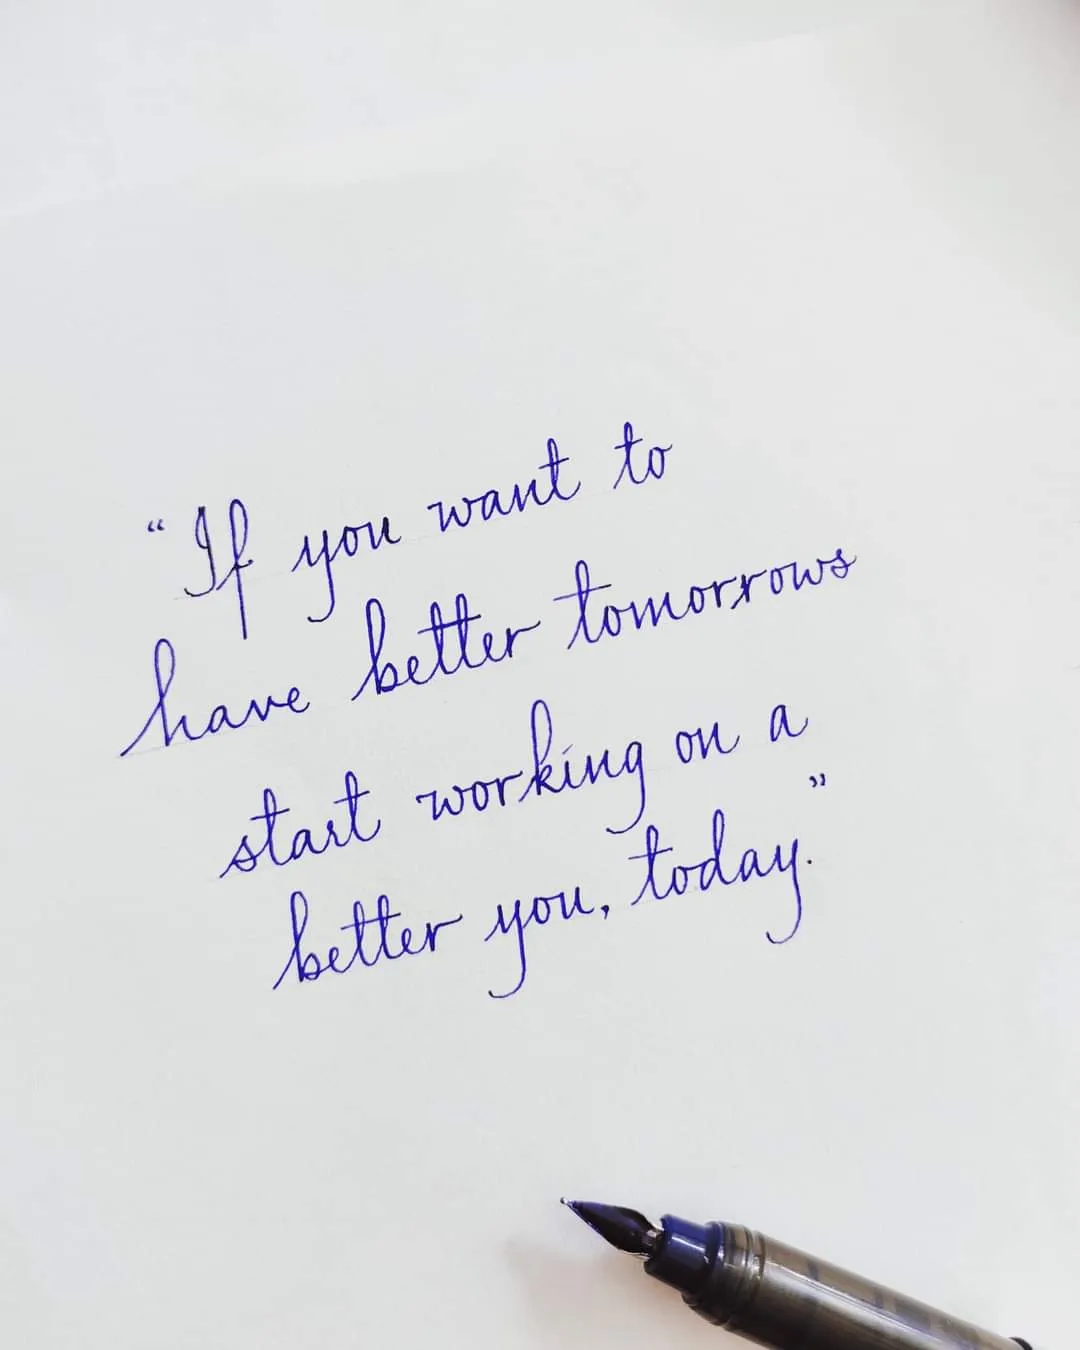 “If you want to
have better tomorrows
start working on a
better you, today.”